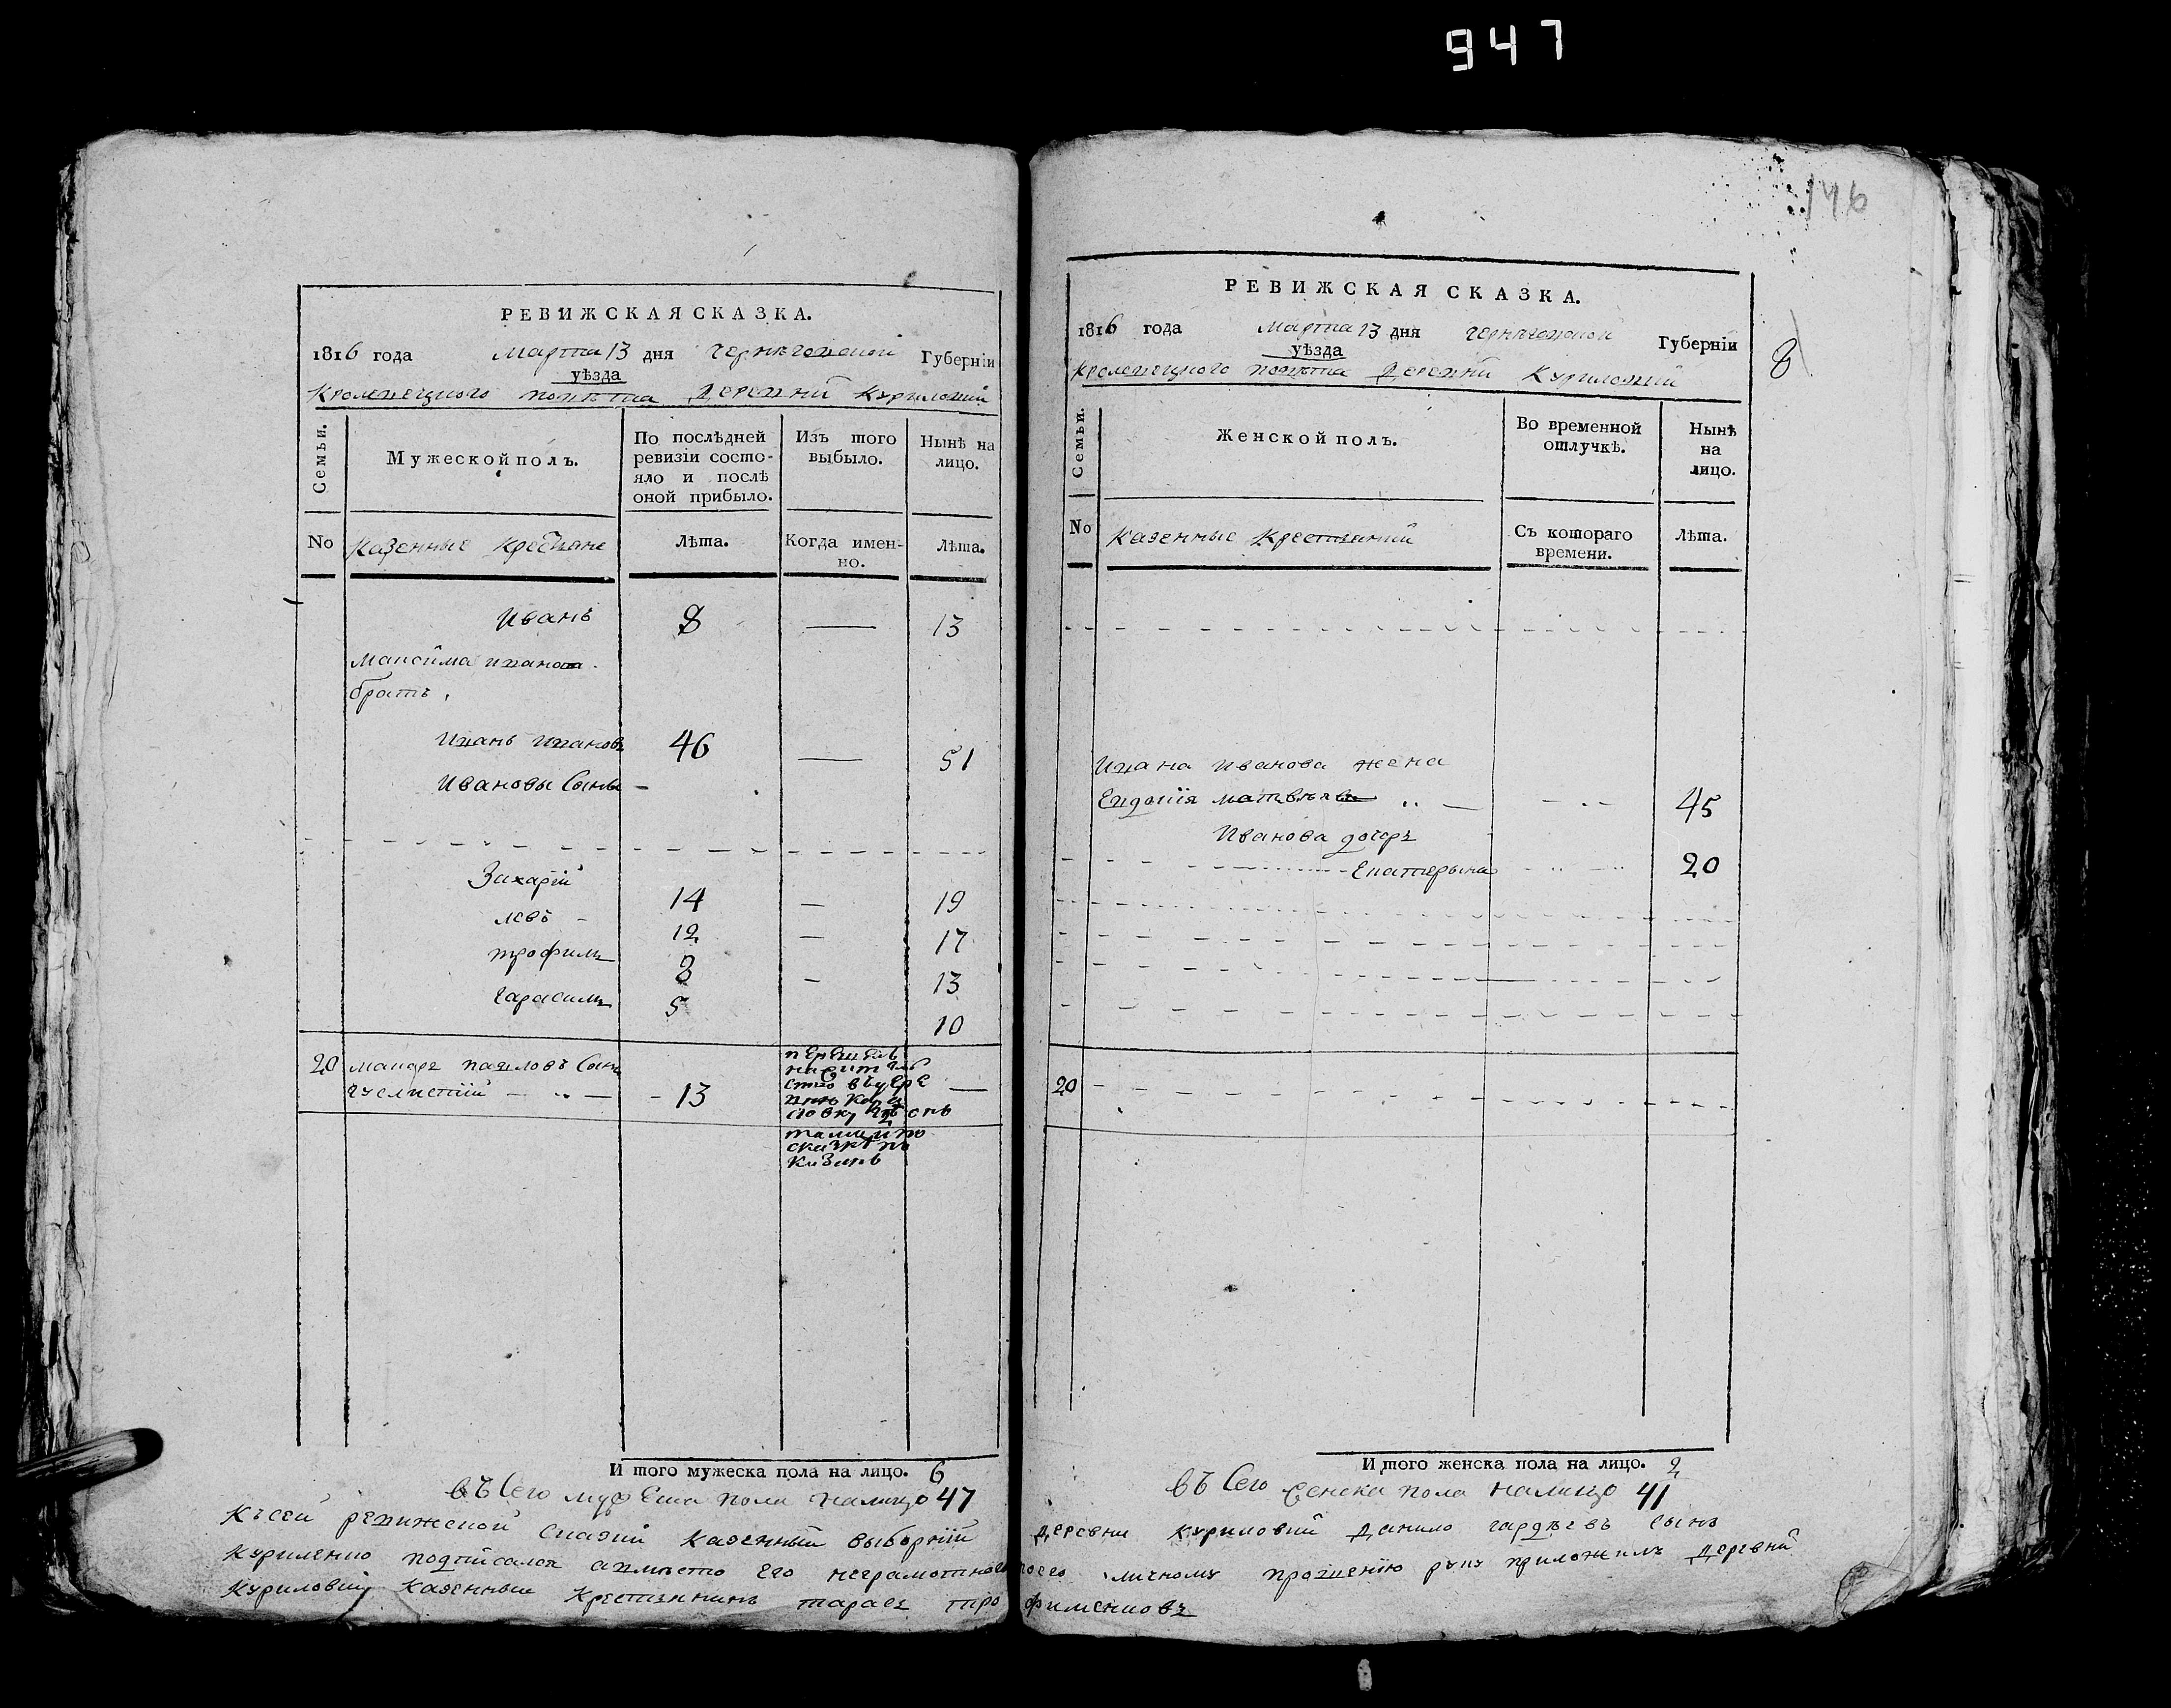 947
146
РЕВИЖСКАЯ СКАЗКА.
1816 года Марта 13 дня Чернѣговской Губерніи
уѣзда
Кролевецкого повѣта Деревни Куриловки
Семьи.
Мужеской полъ.
По послѣдней ревизіи состо-
яло и послѣ
оной прибыло.
Изъ того
выбыло.
Нынѣ на
лицо.
No
Казенные Крестьяне
Лѣта.
Когда имен-
но.
Лѣта.
Иванъ 8 — 13
Максима иванова
братъ
Иванъ Ивановъ 46 — 51
Ивановы Сыны
Захарій 14 — 19
левъ 12 — 17
трофимъ 8 — 13
гарасимъ 5 10
20 макаръ павловъ Сынъ
13
И того мужеска пола на лицо. 6
въ Сего мужеска пола налицо 47
РЕВИЖСКАЯ СКАЗКА.
1816 года Марта 13 дня Чернѣговской Губерніи
уѣзда
Кролевецкого повѣта Деревни Куриловки
8
Семьи.
Женской полъ.
Во временной
отлучкѣ.
Нынѣ
на
лицо.
No
Казенные Крестьянки
Съ котораго
времени.
Лѣта.
Ивана Иванова жена
Евдокія матвѣева 45
Иванова дочеръ
Екатерына 20
20
И того женска пола на лицо. 2
въ Сего женска пола налицо 41
Къ сей ревижской сказки казенный выборній деревни Куриловки Данило гардѣевъ сынъ
Куриленко подписался а вместо его неграмотного его личному прошенію руку приложилъ Деревни
Куриловки казенный Крестьянинъ тарасъ трофименковъ